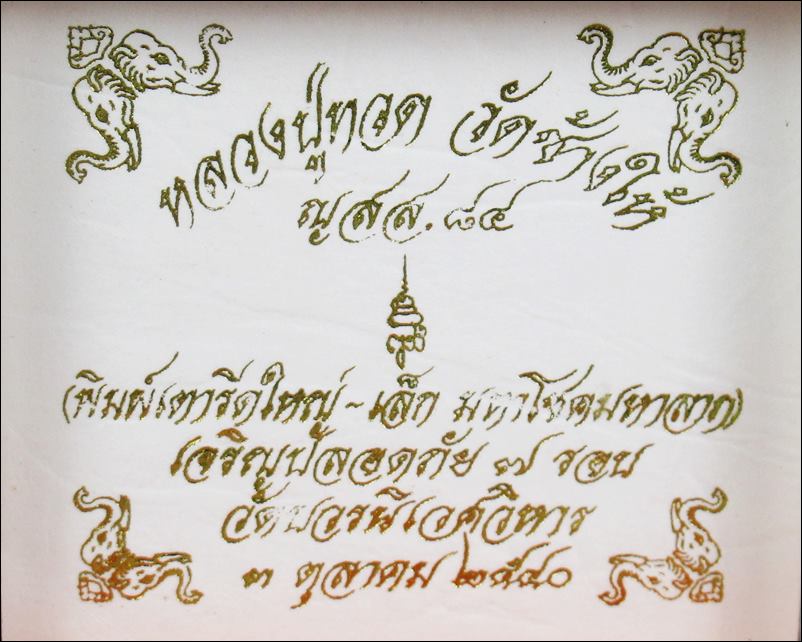 หลวงปู่ทวด วัดช้างให้
ญสส. ๘๔
(พิมพ์เตารีดใหญ่ - เล็ก มหาโชคมหาลาภ)
เจริญปลอดภัย ๗ รอบ
วัดบวรนิเวศวิหาร
๓ ตุลาคม ๒๕๔๐